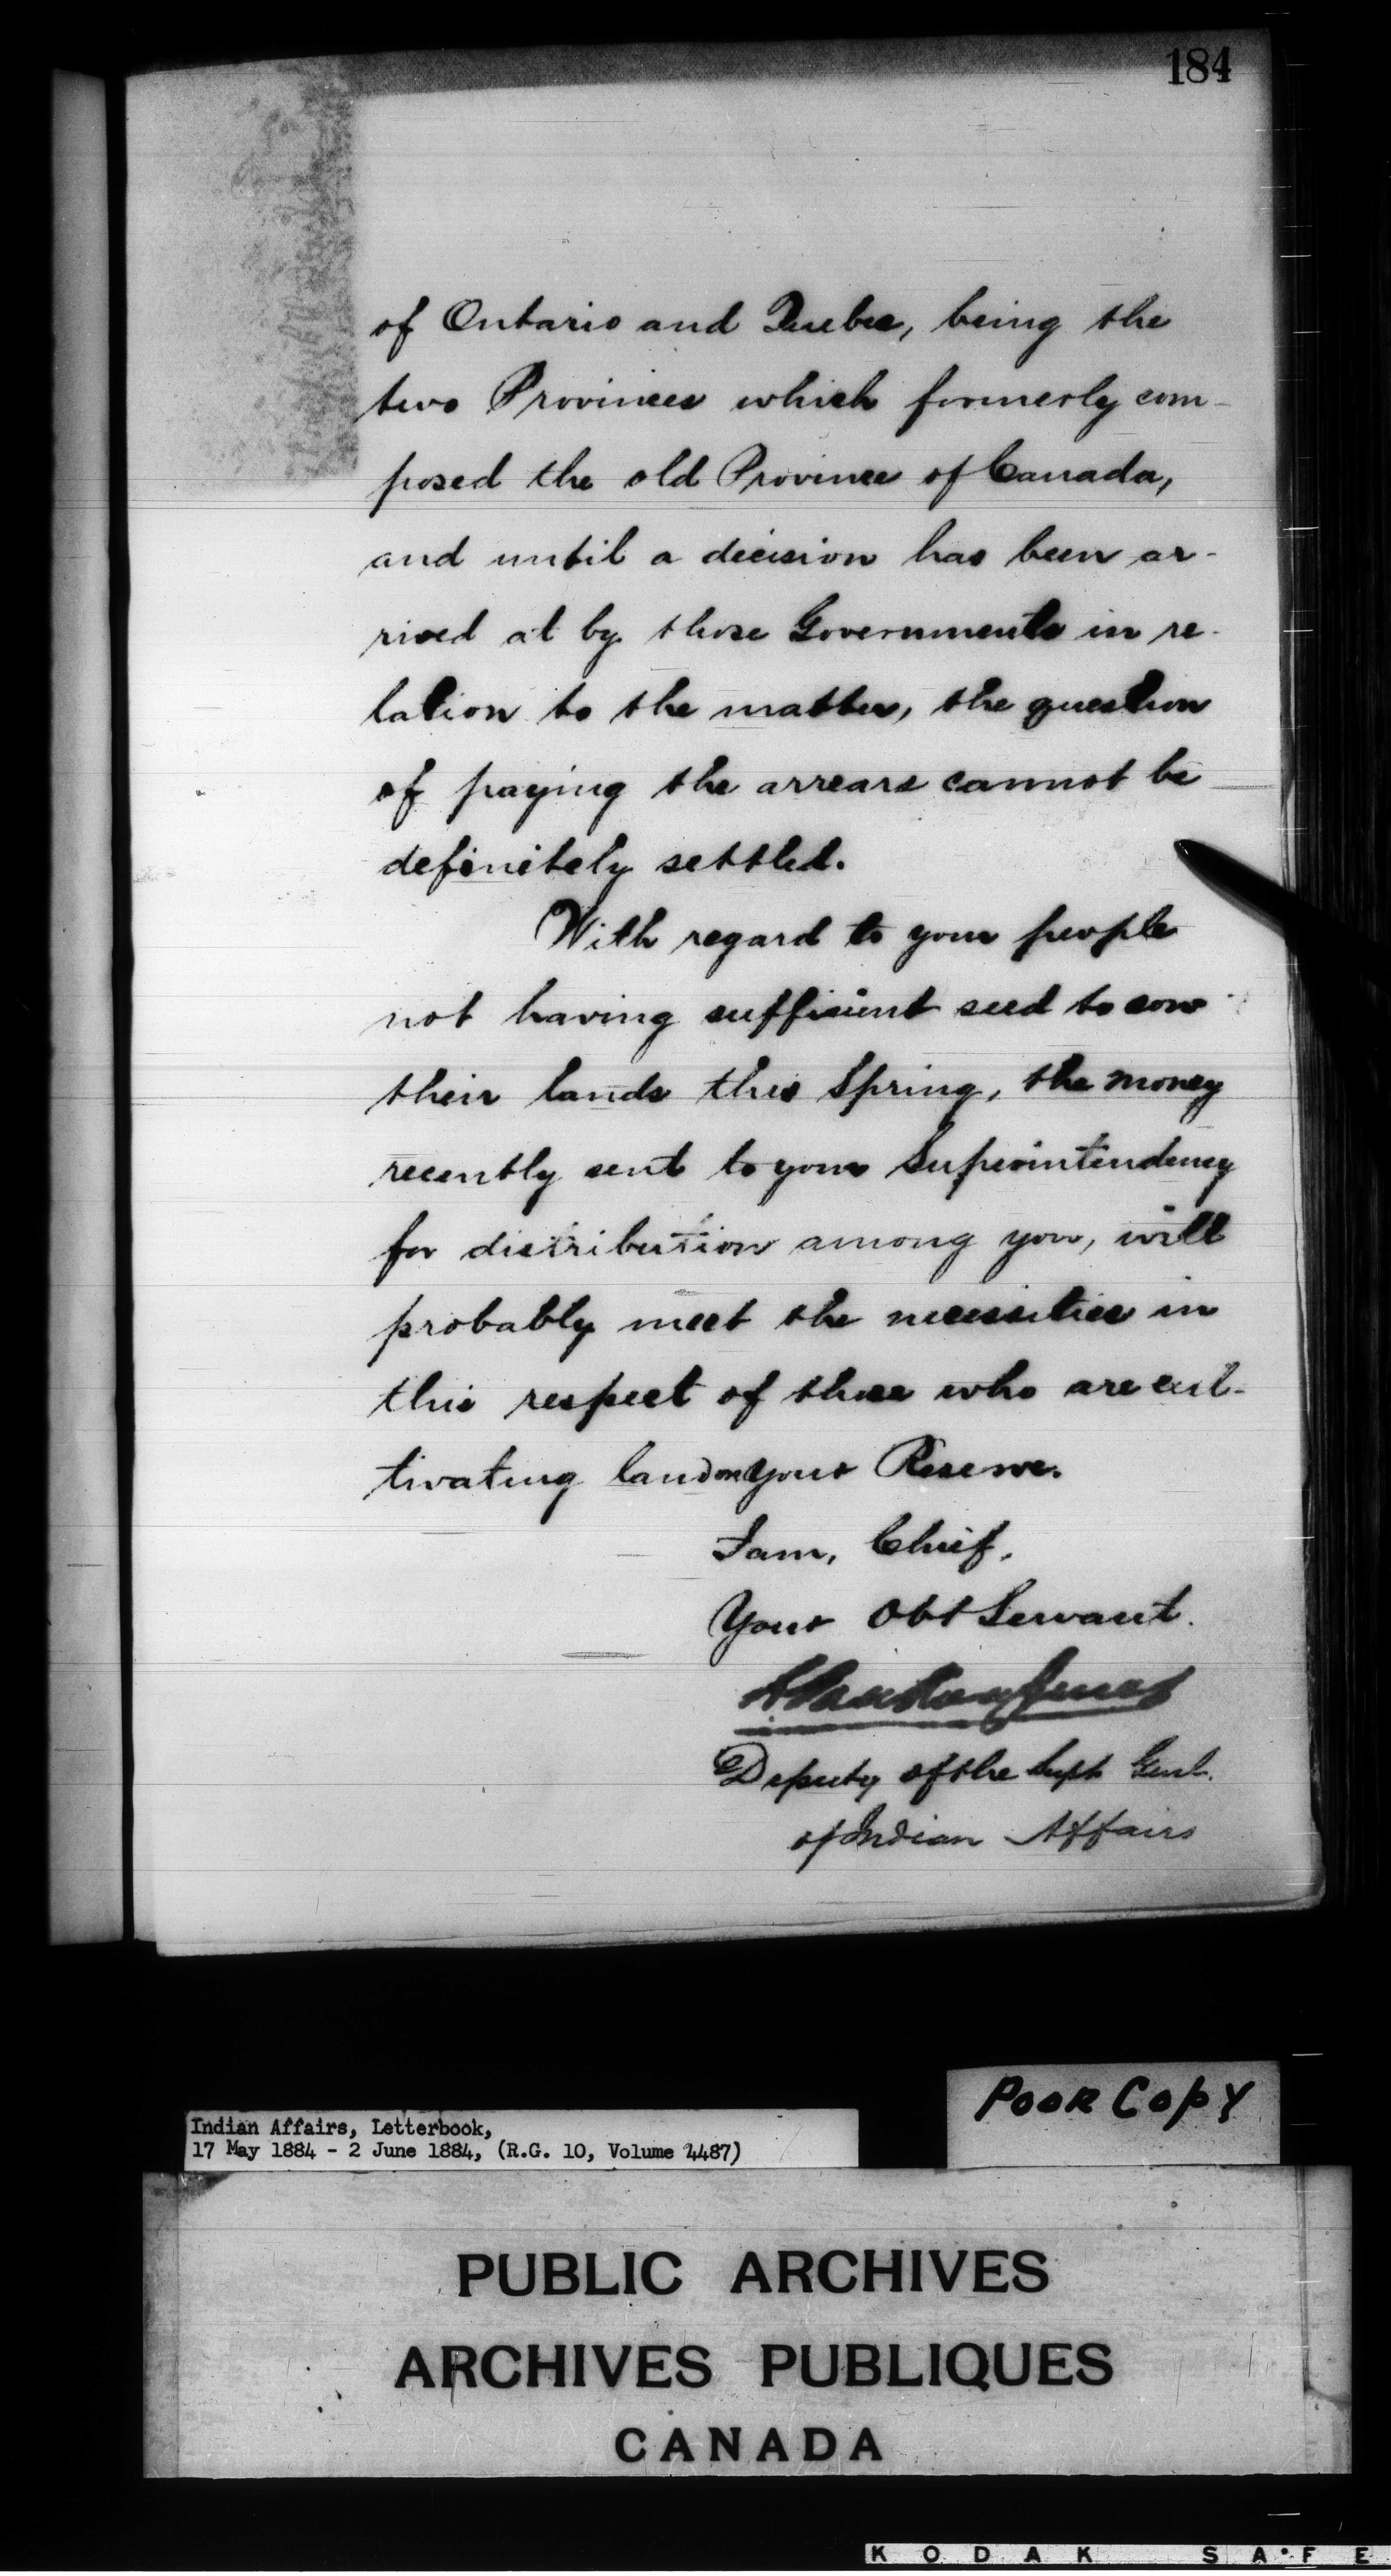 184
of Ontario and Quebec, being the
two Provinces which formerly com-
posed the old Province of Canada,
and until a decision has been ar-
rived at by those Governments in re-
lation to the matter, the question
of paying the arrears cannot be
definitely settled.
With regard to your people
not having sufficient seed to sow
their lands this Spring, the money
recently sent to your Superintendency
for distribution among you, will
probably meet the necessities in
this respect of those who are cul-
tivating land on your Reserve.
I am, Chief,
Your Obt Servant.
Deputy of the Supt Genl.
of Indian Affairs
POOR COPY
Indian Affairs, Letterbook,
17 May 1884 - 2 June 1884, (R.G. 10, Volume 4487)
PUBLIC ARCHIVES
ARCHIVES PUBLIQUES
CANADA
KODAK SAFE